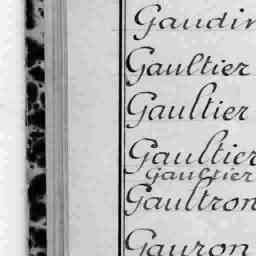 Gaudin
Gaultier
Gaultier
Gaultier
Gaultier
Gaultron
Gauron